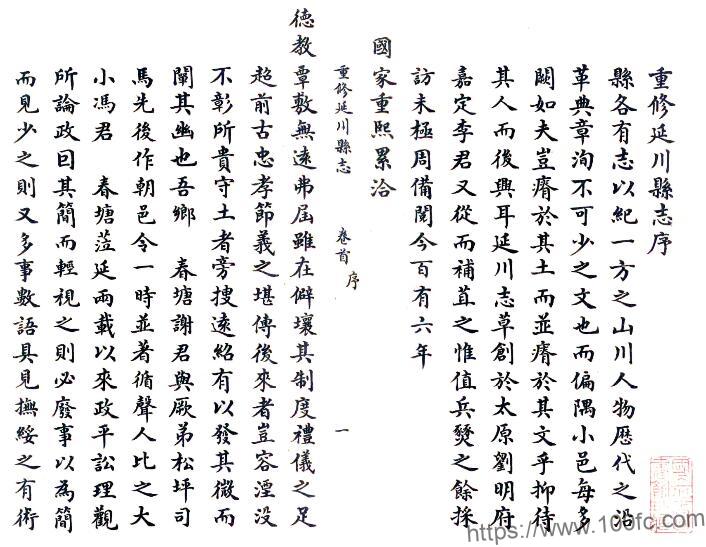 重修延川縣志序
縣各有志以紀一方之山川人物歷代之沿
革典章洵不可少之文也而偏隅小邑每多
闕如夫豈瘠於其土而並瘠於其文乎抑待
其人而後興耳延川志草創於太原劉明府
嘉定李君又從而補苴之惟值兵燹之餘採
訪未極周備閱今百有六年
國家重熙累洽
重修延川縣志 卷首 序 一
德教覃敷無遠弗屆雖在僻壤其制度禮儀之足
超前古忠孝節義之堪傳後來者豈容湮没
不彰所貴守土者旁搜遠紹有以發其微而
闡其幽也吾鄉 春塘謝君與厥弟松坪司
馬先後作朝邑令一時並著循聲人比之大
小馮君 春塘蒞延兩載以來政平訟理觀
所論政曰其簡而輕視之則必廢事以為簡
而見少之則又多事數語具見撫綏之有術
https://www.100fc.com